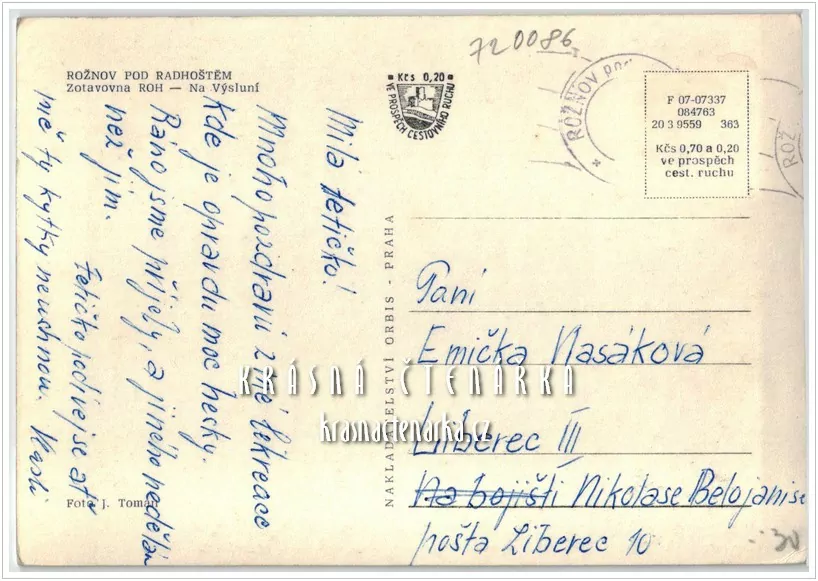 720086
ROŽNOV POD RADHOŠTĚM
Zotavovna ROH — Na Výsluní
Kčs 0,20
VE PROSPĚCH CESTOVNÍHO RUCHU
ROŽNOV POD
ROŽ
F 07-07337
084763
20 3 9559 363
Kčs 0,70 a 0,20
ve prospěch
cest. ruchu
Milá tetičko!
Mnoho pozdravů z mé rekreace
Kde je opravdu moc hezky.
Ráno jsme přijely, a jiného nedělám
než jím.
Tetičko podívej se ať
mě ty kytky neuschnou.
Foto J. Toman
NAKLADATELSTVÍ ORBIS - PRAHA
Paní
Emička Nasáková
Liberec III
Na bojišti Nikolase Belojanise
pošta Liberec 10
30
KRÁSNÁ ČTENÁRKA
krasnactenarka.cz